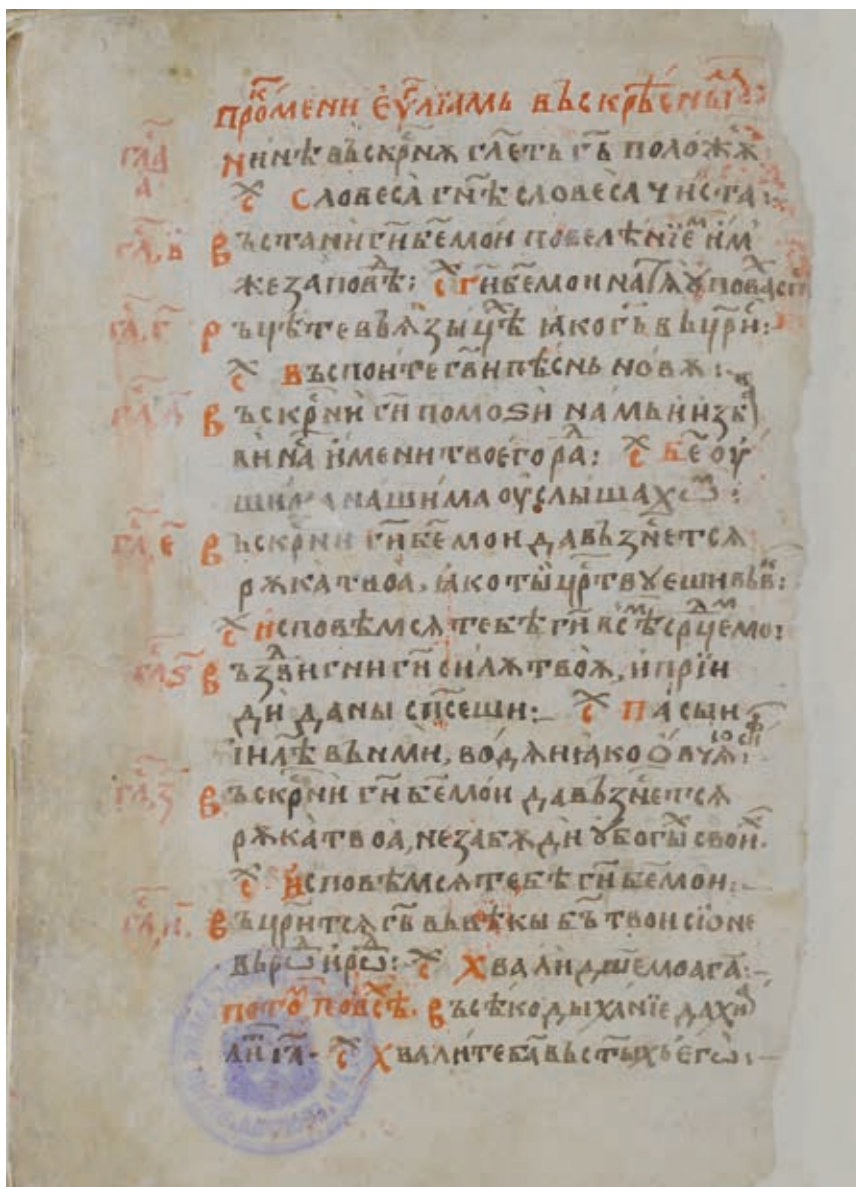 прⷪ҇кмени еѵ҃лїамь въскрⷭ҇ѣнⷩ҇ыⷨ
глаⷭ҇ а нинѣ въскрⷭ҇нѫ гл҃еть гь҃ положѫⷭ҇
сⷯ словеса гн҃ѣ словеса чиста :
глⷭ҇а, в҃ въстани ги҃ бе҃ мои повелѣнїеⷨ им
же заповⷣѣ : сⷯ ги҃ бе҃ мои на тѧ ꙋповаⷯ
глⷭ҇а, г҃ рьцѣте вь ѧзыцⷯѣ ꙗко гь҃ вьцр҃иⷭ҇ :
сⷯ въспоите гв҃и пѣснь новѫ :
глⷭ҇а, д҃ въскрⷭ҇ни ги҃ помоѕи намь и изб
ви наⷭ҇ имени твоего раⷣ : сⷯ бе҃ оу
шима нашима оуслышахѡⷨ :
глⷭ҇а, е҃ въскрⷭ҇ни ги҃ бе҃ мои да възнеⷭ҇тсѧ
рѫка твоа, ꙗко ты црⷭ҇твꙋеши вь вⷦ҇ :
сⷯ исповѣмсѧ тебѣ ги҃ всѣⷨ срⷣцемоⷨ :
глⷭ҇а, ѕ҃ въздвⷣигни ги҃ силѫ твоѫ, и прїи
ди да ны сп҃сеши : сⷯ пасыи
їил҃ѣ вънми, водѧи ꙗко овчѧ їѡсиⷴ
глⷭ҇а, з҃ въскрⷭ҇ни ги҃ бе҃ мои да възнеⷭ҇тсѧ
рѫка твоа, не забѫди ꙋбогыⷯ своиⷯ.
сⷯ исповѣмсѧ тебѣ ги҃ бе҃ мои :
глⷭ҇а, и҃. въцр҃итсѧ гь҃ вь вѣкы бь҃ твои сїоне
вь рѡⷣ и рѡⷣ : сⷯ хвали дш҃е моа га҃ :
потоⷨ по всⷯѣ. въсѣко дыханїе да хⷡ
лиⷮ га҃ · сⷯ хвалите ба҃ вь ст҃ыхь его :